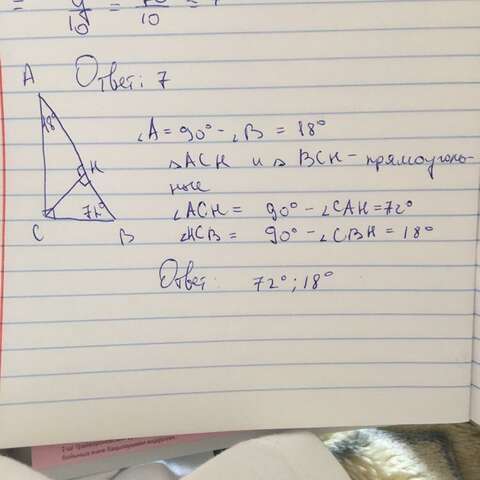 = 9/10 = 10
Ответ: 7
A
18°
H
72°
C
B
∠A = 90° - ∠B = 18°
△ACH и △BCH - прямоуголь-
ные
∠ACH = 90° - ∠CAH = 72°
∠HCB = 90° - ∠CBH = 18°
Ответ: 72°; 18°